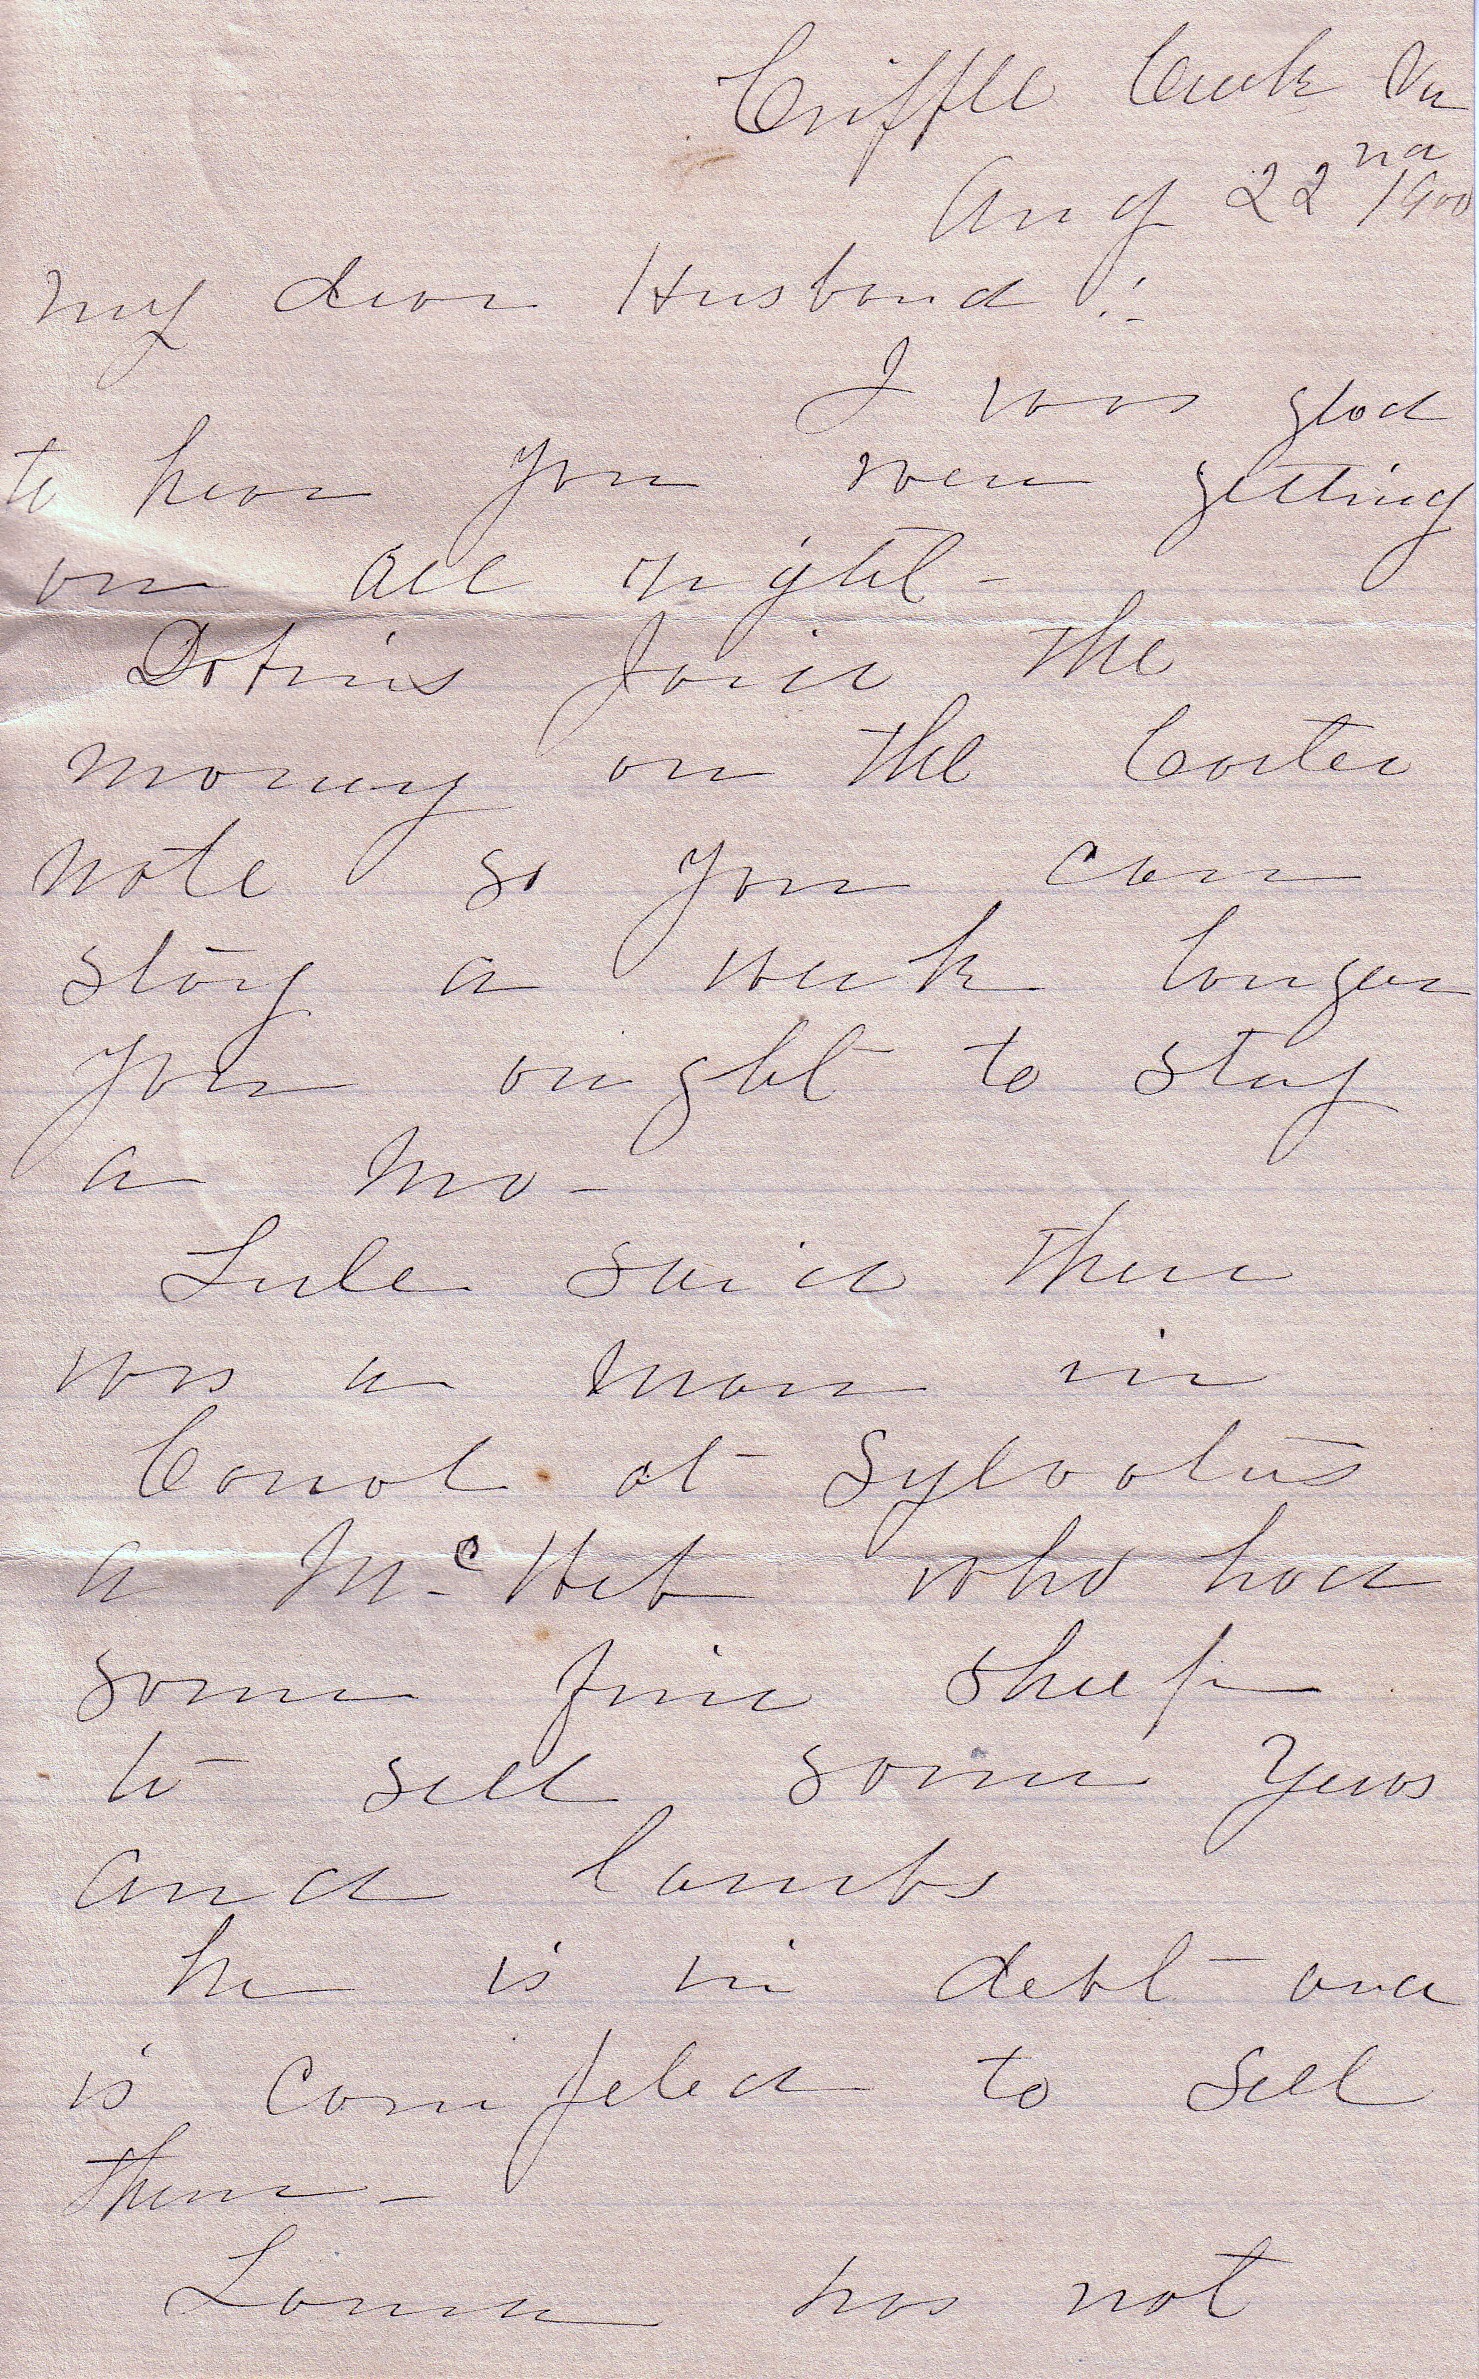 Cripple Creek Va
Aug 22nd 1900
My dear Husband !!
I was glad
to hear you were getting
on all right -
Dobins paid the
money on the
note so you can
stay a week longer
you ought to stay
a mo -
Lule said there
was a man in
Carrol at Sylvatus
a Mc who had
some fine sheep
to sell some Yews
and lambs
he is in debt and
is compeled to sell
them -
has not